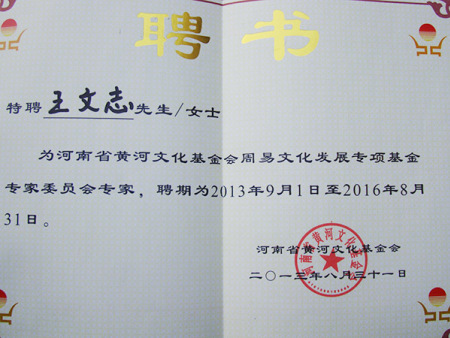 聘书
特聘王文志先生/女士
为河南省黄河文化基金会周易文化发展专项基金
专家委员会专家，聘期为2013年9月1日至2016年8月
31日。
河南省黄河文化基金会
二〇一三年八月三十一日
河南省黄河文化基金会